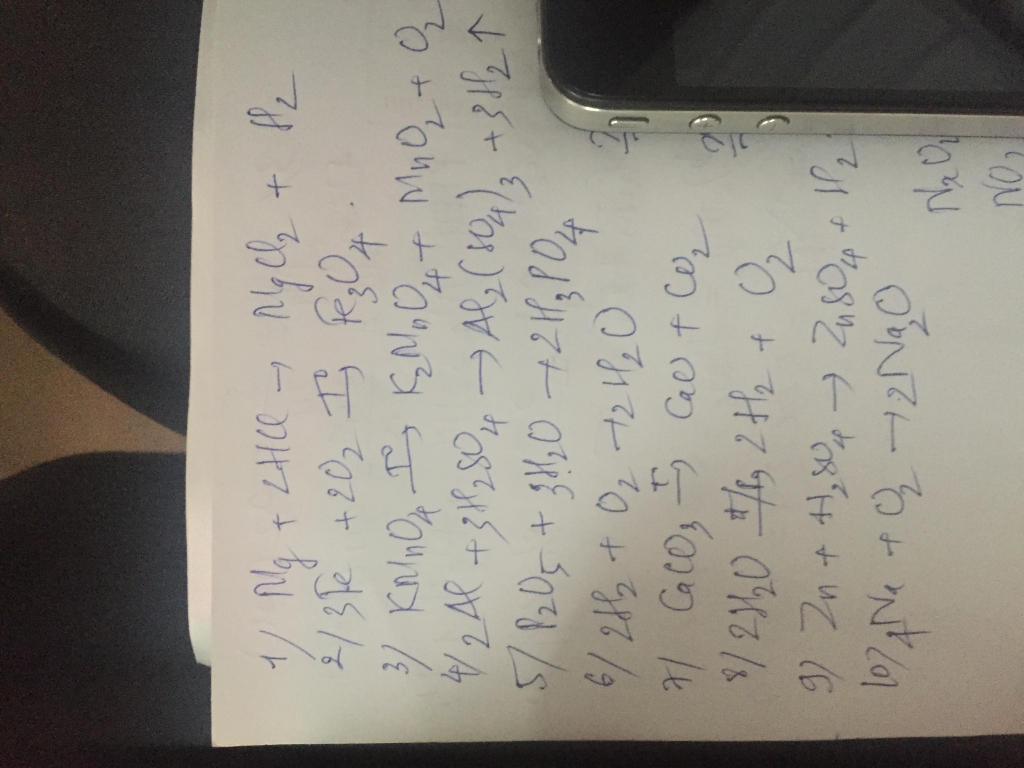 1) Mg + 2HCl → MgCl2 + H2
2) 3Fe + 2O2 T→ Fe3O4.
3) KMnO4 T→ K2MnO4 + MnO2 + O2
4) 2Al + 3H2SO4 → Al2(SO4)3 + 3H2↑
5) P2O5 + 3H2O → 2H3PO4
6) 2H2 + O2 → 2H2O
7) CaCO3 T→ CaO + CO2
8) 2H2O → 2H2 + O2
9) Zn + H2SO4 → ZnSO4 + H2.
10) 4Na + O2 → 2Na2O
N2O2
NO2